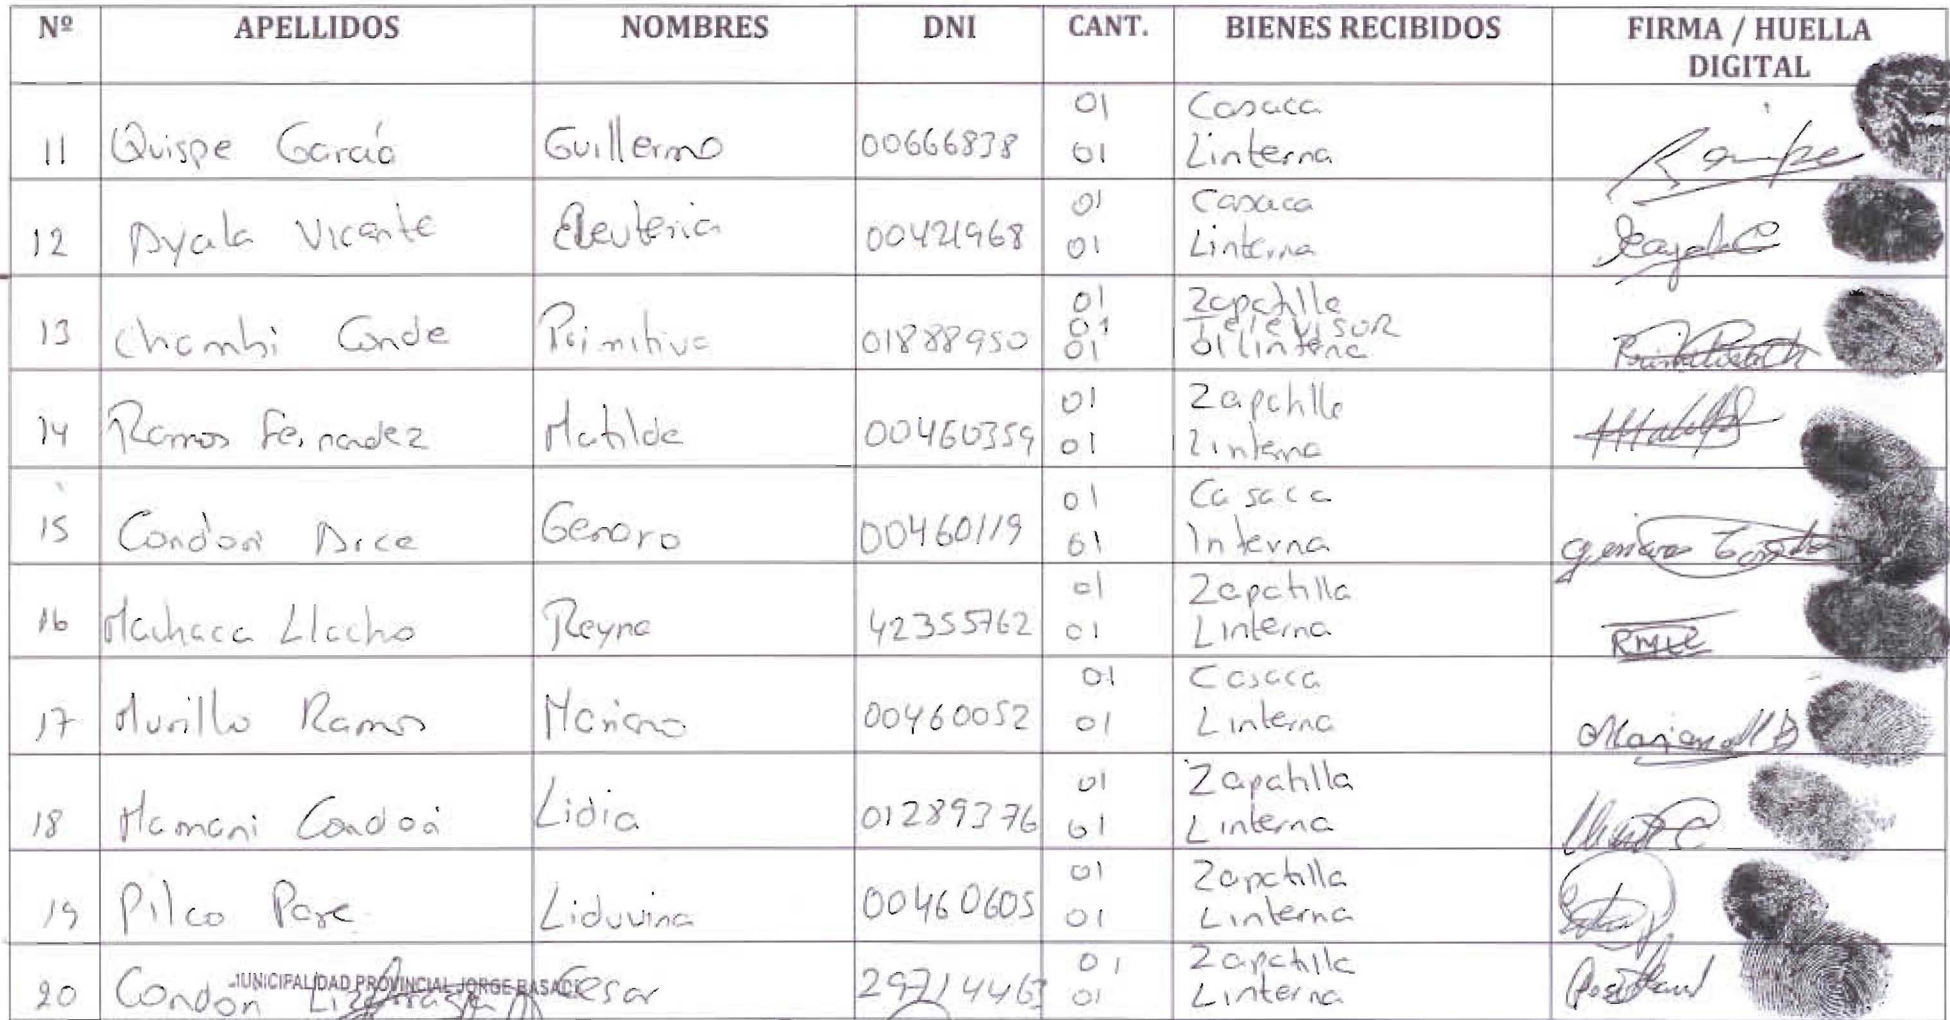 Nº APELLIDOS NOMBRES DNI CANT. BIENES RECIBIDOS FIRMA / HUELLA DIGITAL
11 Quispe García Guillermo 00666838 01 Casaca
01 Linterna
12 Ayala Vicente Eleuteria 00421968 01 Casaca
01 Linterna
13 Chambi Conde Primitiva 01888950 01 Zapatilla
01 Televisor
01 01 linterna
14 Ramos Fernadez Matilde 00460359 01 Zapatilla
01 Linterna
15 Condori Arce Genaro 00460119 01 Casaca
01 Interna
16 Machaca Llacho Reyna 42355762 01 Zapatilla
01 Linterna
RMLL
17 Murillo Ramos Mariano 00460052 01 Casaca
01 Linterna
18 Mamani Condori Lidia 01289376 01 Zapatilla
01 Linterna
19 Pilco Pare Liduvina 00460605 01 Zapatilla
01 Linterna
20 Condori Cesar 29714463 01 Zapatilla
01 Linterna
MUNICIPALIDAD PROVINCIAL JORGE BASADRE